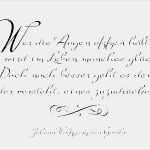 Wer die Augen offen hält
wird im Leben manches glüc
Doch noch besser geht es dem
der versteht, eines zuzudrücke
Johann Wolfgang von Goethe